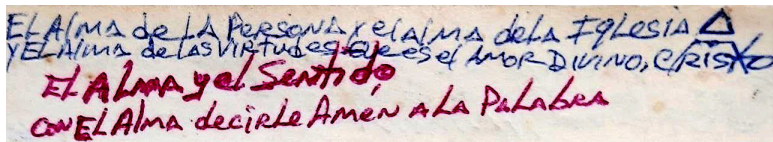 EL Alma de LA Persona y el alma de la Iglesia △
y EL Alma de las virtudes que es el AMOR DIVINO, CRISTO
El Alma y el Sentido,
con EL Alma decirle Amén a la Palabra